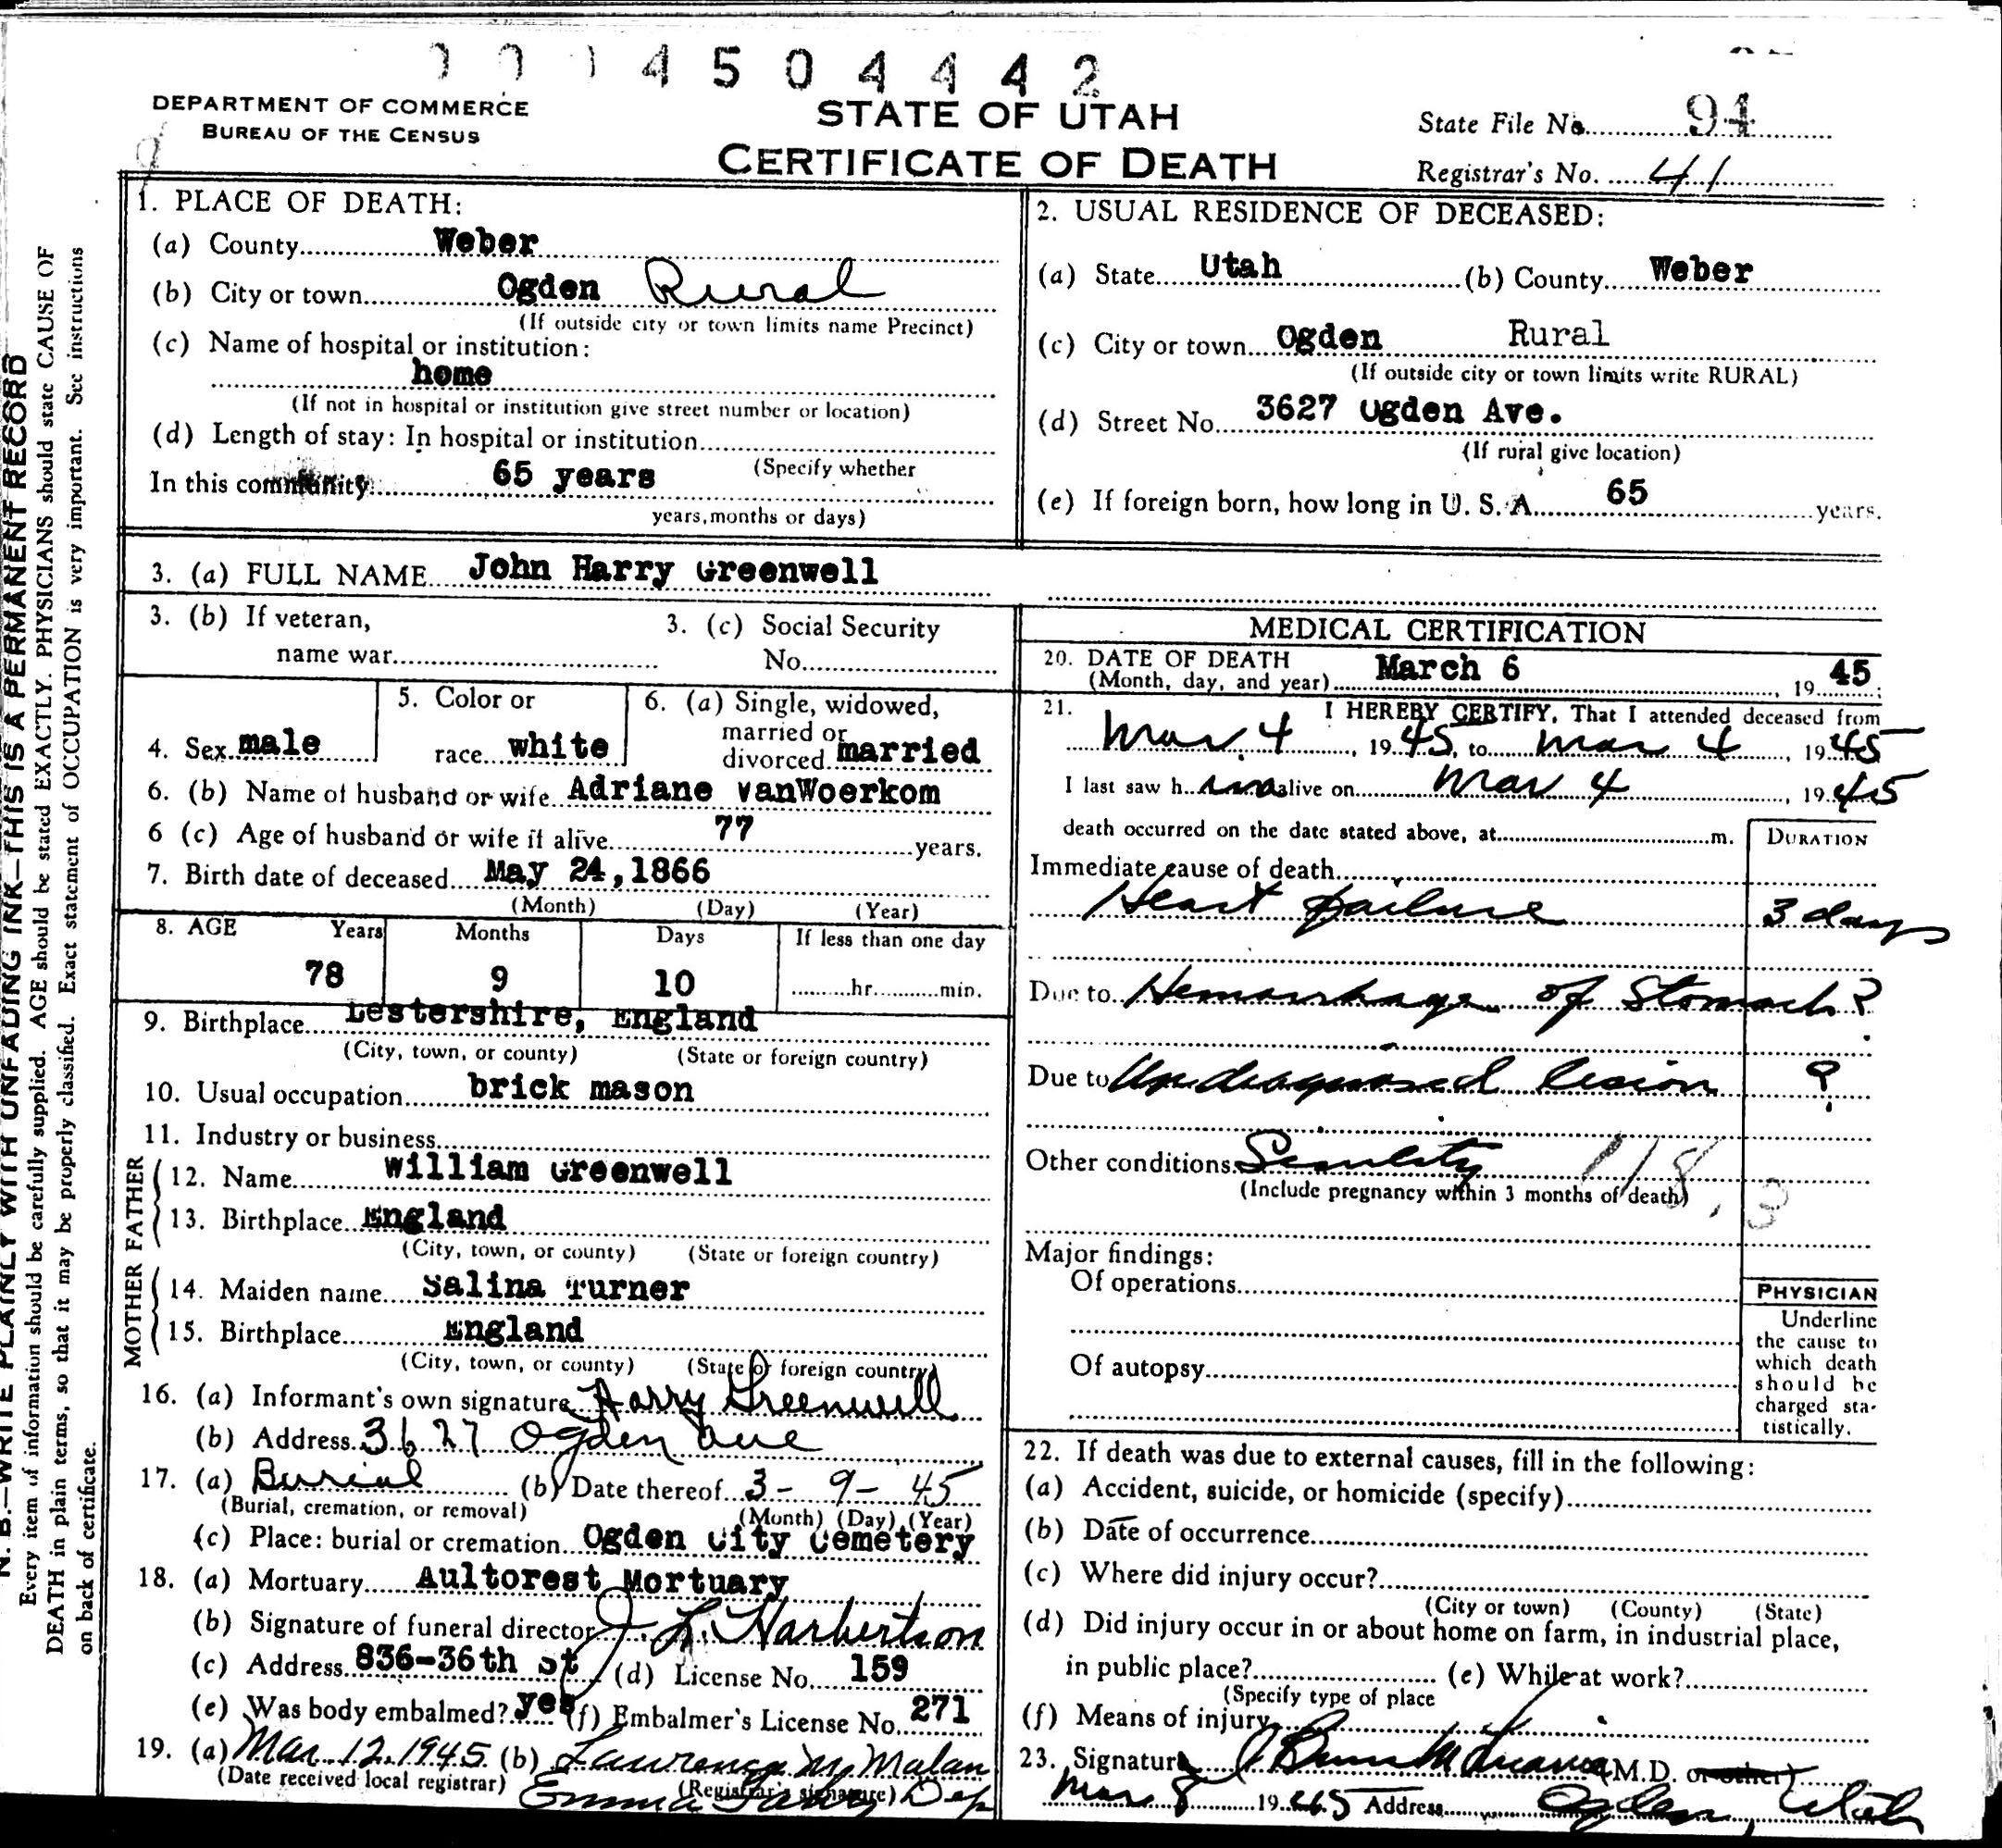 4 5 0 4 4 4 2
DEPARTMENT OF COMMERCE
BUREAU OF THE CENSUS
STATE OF UTAH
CERTIFICATE OF DEATH
State File No. 94
Registrar's No. 41
1. PLACE OF DEATH:
(a) County Weber
(b) City or town Ogden Rural
(If outside city or town limits name Precinct)
(c) Name of hospital or institution:
home
(If not in hospital or institution give street number or location)
(d) Length of stay: In hospital or institution
(Specify whether
In this community 65 years
years, months or days)
2. USUAL RESIDENCE OF DECEASED:
(a) State Utah (b) County Weber
(c) City or town Ogden Rural
(If outside city or town limits write RURAL)
(d) Street No. 3627 Ogden Ave.
(If rural give location)
(e) If foreign born, how long in U. S. A. 65 years.
3. (a) FULL NAME John Harry Greenwell
3. (b) If veteran,
name war
3. (c) Social Security
No.
4. Sex male
5. Color or
race white
6. (a) Single, widowed,
married or
divorced married
6. (b) Name of husband or wife Adriane vanWoerkom
6 (c) Age of husband or wife if alive 77 years.
7. Birth date of deceased May 24, 1866
(Month) (Day) (Year)
8. AGE Years Months Days If less than one day
78 9 10 hr. min.
9. Birthplace Lestershire, England
(City, town, or county) (State or foreign country)
10. Usual occupation brick mason
11. Industry or business
FATHER
12. Name William Greenwell
13. Birthplace England
(City, town, or county) (State or foreign country)
MOTHER
14. Maiden name Salina Turner
15. Birthplace England
(City, town, or county) (State or foreign country)
16. (a) Informant's own signature Harry Greenwell
(b) Address 3627 Ogden ave
17. (a) Burial (b) Date thereof 3 - 9 - 45
(Burial, cremation, or removal) (Month) (Day) (Year)
(c) Place: burial or cremation Ogden City Cemetery
18. (a) Mortuary Aultorest Mortuary
(b) Signature of funeral director J. L. Harbertson
(c) Address 836-36th st (d) License No. 159
(e) Was body embalmed? yes (f) Embalmer's License No. 271
19. (a) Mar. 12, 1945 (b) Lawrence M. Malan
(Date received local registrar) (Registrar's signature)
Emma Dep
MEDICAL CERTIFICATION
20. DATE OF DEATH March 6 45
(Month, day, and year) , 19
21. I HEREBY CERTIFY, That I attended deceased from
Mar. 4, 1945, to Mar 4, 1945
I last saw h im alive on Mar 4, 1945
death occurred on the date stated above, at m.
DURATION
Immediate cause of death
Heart failure 3 days
Due to Hemorrhage of Stomach ?
Due to Undiagnosed lesion ?
Other conditions Senility 118,3
(Include pregnancy within 3 months of death)
Major findings:
Of operations
Of autopsy
PHYSICIAN
Underline
the cause to
which death
should be
charged sta-
tistically.
22. If death was due to external causes, fill in the following:
(a) Accident, suicide, or homicide (specify)
(b) Date of occurrence
(c) Where did injury occur?
(City or town) (County) (State)
(d) Did injury occur in or about home on farm, in industrial place,
in public place? (e) While at work?
(Specify type of place
(f) Means of injury
23. Signature M.D. or other)
Mar 8 1945 Address Ogden, Utah
N. B.—WRITE PLAINLY WITH UNFADING INK—THIS IS A PERMANENT RECORD
Every item of information should be carefully supplied. AGE should be stated EXACTLY. PHYSICIANS should state CAUSE OF
DEATH in plain terms, so that it may be properly classified. Exact statement of OCCUPATION is very important. See instructions
on back of certificate.